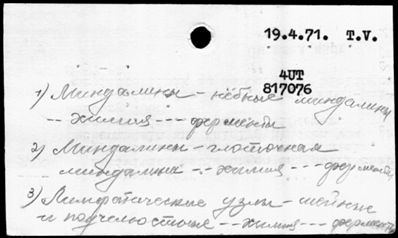 19.4.71. T.V.
4UT
817076
1) Миндалины - нёбные миндалины
-- химия --- ферменты
2) Миндалины - глоточная
миндалина -- химия --- ферменты
3) Лимфатические узлы - шейные
и подчелюстные -- химия --- ферменты